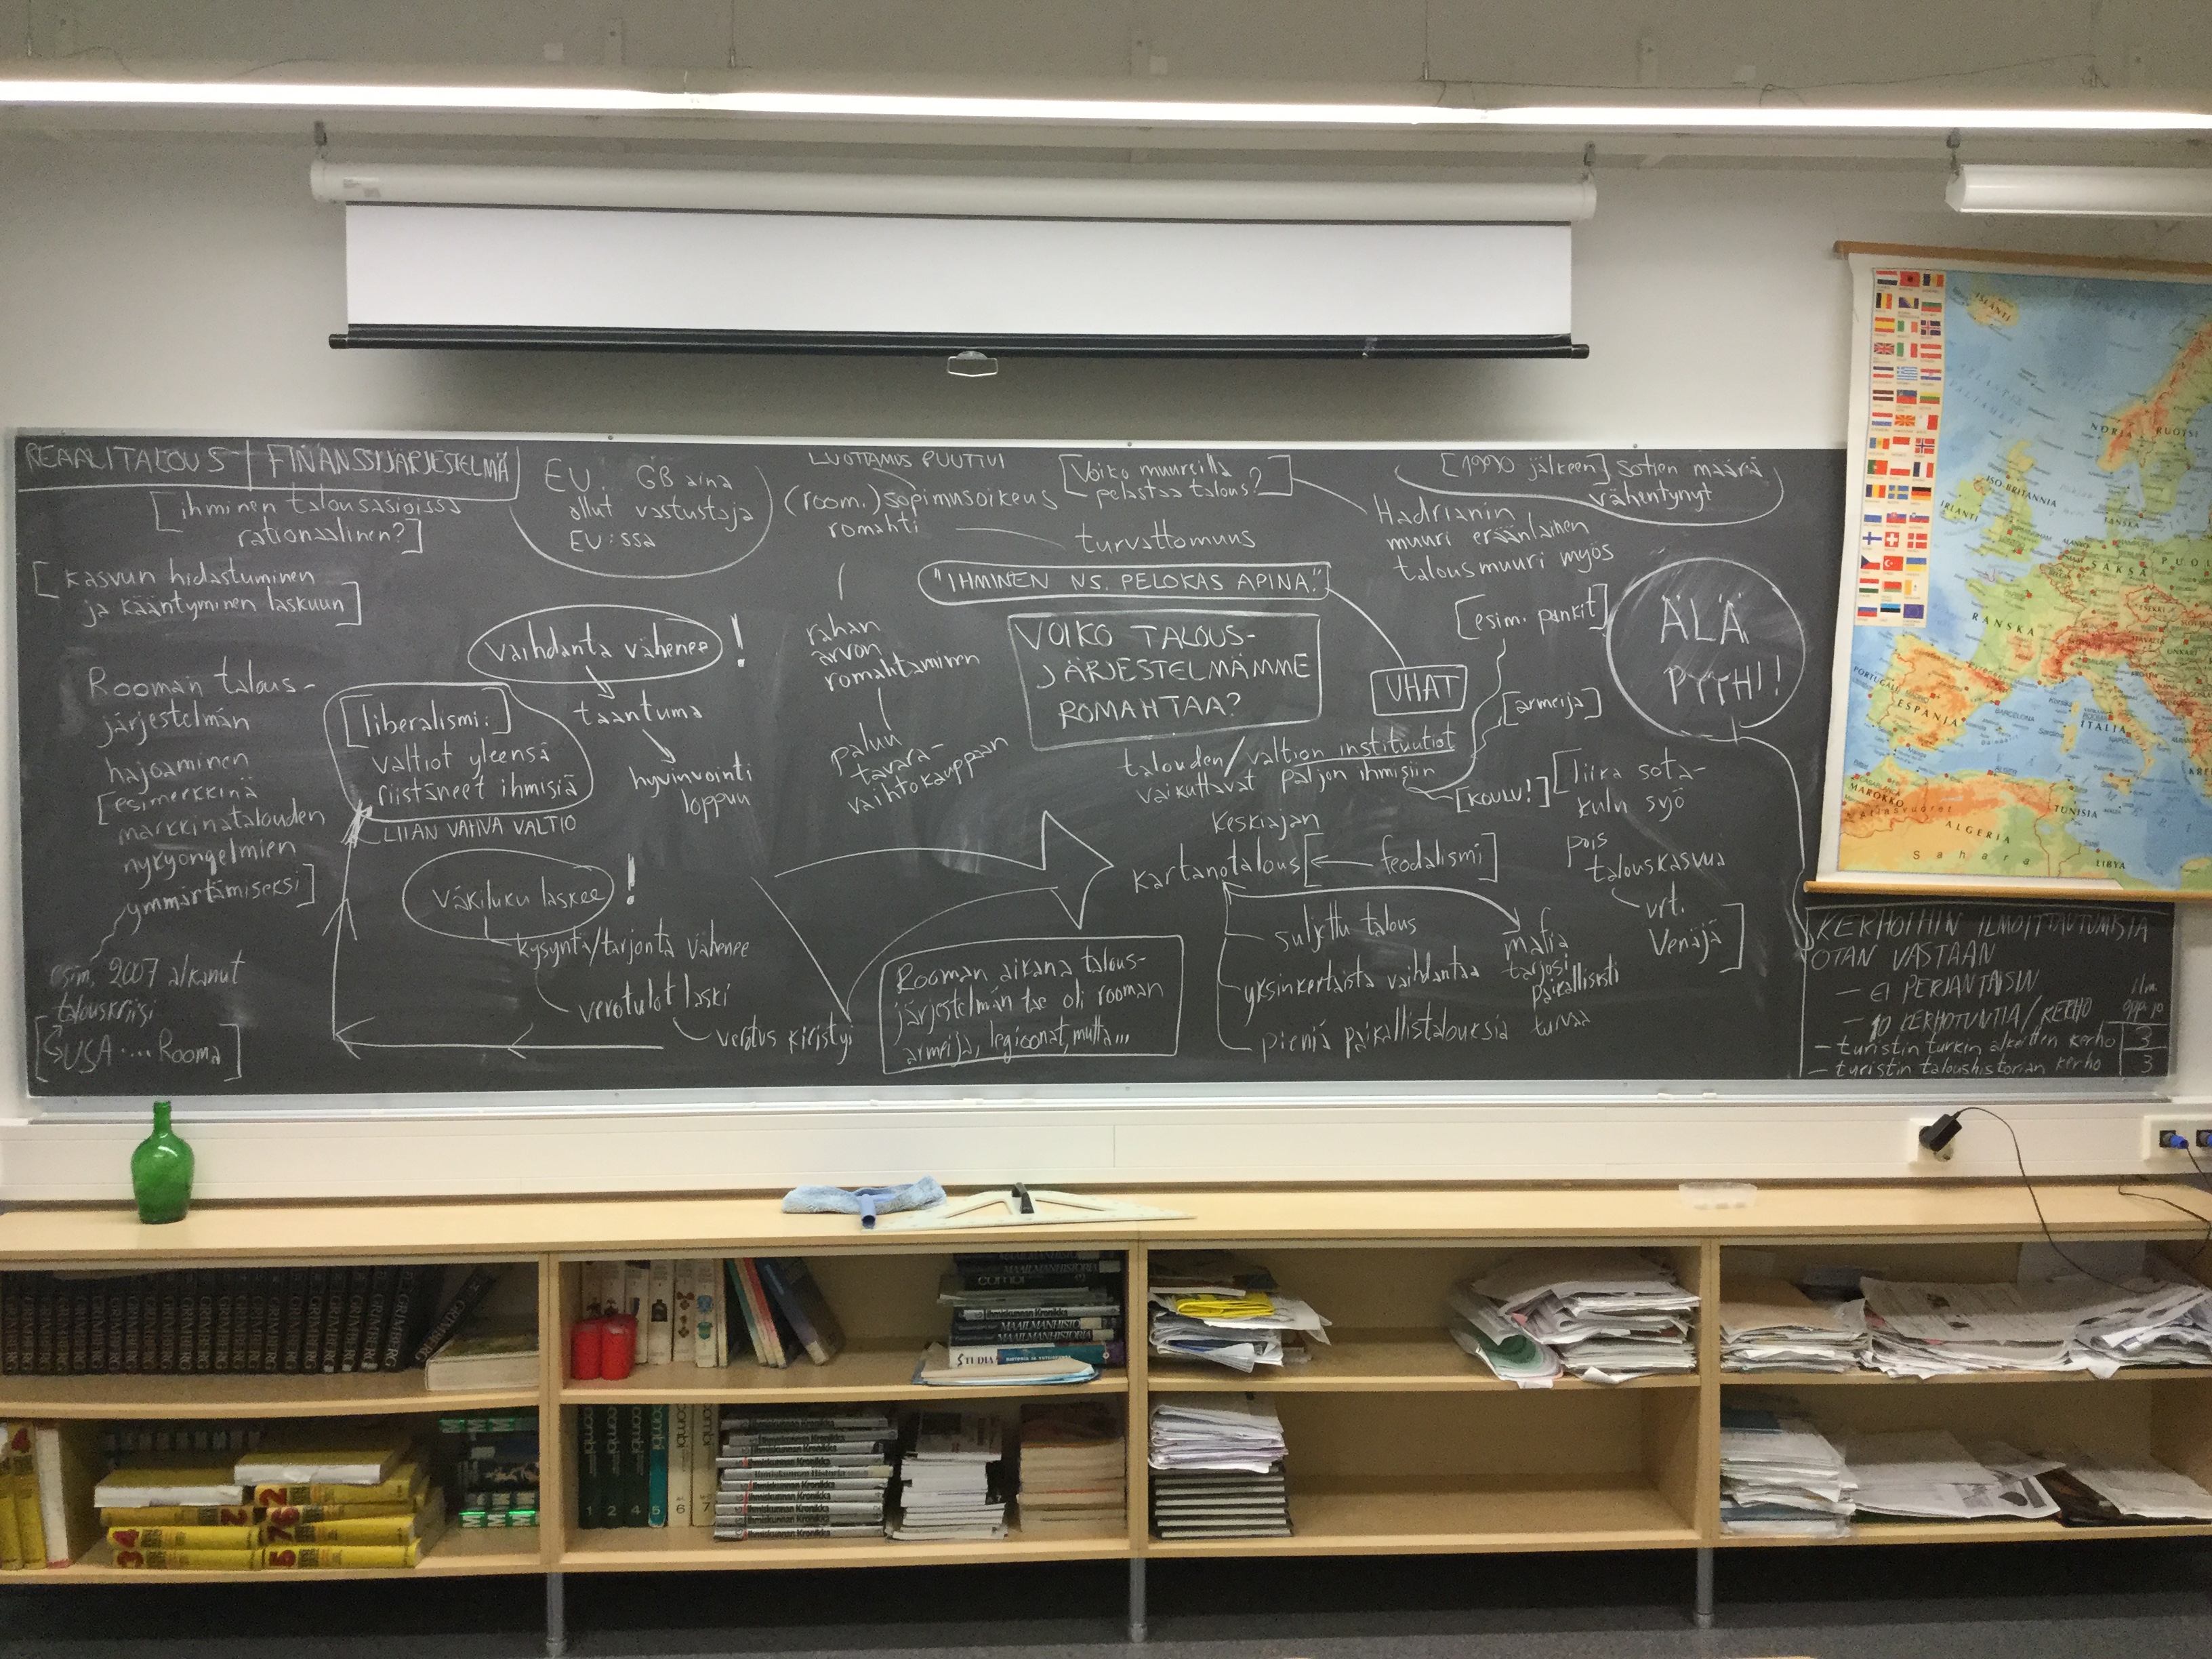 REAALITALOUS | FINANSSIJÄRJESTELMÄ
[ihminen talousasioissa
rationaalinen?]
[kasvun hidastuminen
ja kääntyminen laskuun]
Rooman talous-
järjestelmän
hajoaminen
[esimerkkinä
markkinatalouden
nykyongelmien
ymmärtämiseksi]
esim. 2007 alkanut
talouskriisi
[USA .... Rooma]
EU. GB aina
ollut vastustaja
EU:ssa
vaihdanta vähenee !
taantuma
hyvinvointi
loppuu
[liberalismi:]
valtiot yleensä
riistäneet ihmisiä
LIIAN VAHVA VALTIO
väkiluku laskee !
kysyntä/tarjonta vähenee
verotulot laski
verotus kiristyi
LUOTTAMUS PUUTTUI
(room.) sopimusoikeus
romahti
turvattomuus
rahan
arvon
romahtaminen
paluu
tavara-
vaihtokauppaan
[Voiko muureilla
pelastaa talous?]
Hadrianin
muuri eräänlainen
talousmuuri myös
[1990 jälkeen] sotien määrä
vähentynyt
"IHMINEN NS. PELOKAS APINA."
VOIKO TALOUS-
JÄRJESTELMÄMME
ROMAHTAA?
UHAT
[esim. pankit]
[armeija]
talouden/valtion instituutiot
vaikuttavat paljon ihmisiin
[KOULU!]
[liika sota-
kulu syö
pois
talouskasvua
vrt.
Venäjä]
Keskiajan
kartanotalous [← feodalismi]
suljettu talous
yksinkertaista vaihdantaa
pieniä paikallistalouksia
mafia
tarjosi
paikallisesti
turvaa
Rooman aikana talous-
järjestelmän tae oli rooman
armeija, legioonat, mutta...
ÄLÄ
PYYHI!
KERHOIHIN ILMOITTAUTUMISIA
OTAN VASTAAN
- EI PERJANTAISIN
- 10 KERHOTUNTIA/KERHO
ilm.
- turistin turkin alkeitten kerho 3
- turistin taloushistorian kerho 3
ISLANTI
NORJA
RUOTSI
ISO-BRITANNIA
IRLANTI
TANSKA
SAKSA
PUOL
RANSKA
PORTUGALI
ESPANJA
ITALIA
MAROKKO
ALGERIA
TUNISIA
LIBYA
Sahara
GRIMBERG
MAAILMANHISTORIA
combi
Ihmiskunnan Kronikka
MAAILMANHISTORIA
MAAILMANHISTORIA
STUDIA
combi
1 2 4 5 6 7
Ihmiskunnan Kronikka
Ihmiskunnan Historia
Ihmiskunnan Kronikka